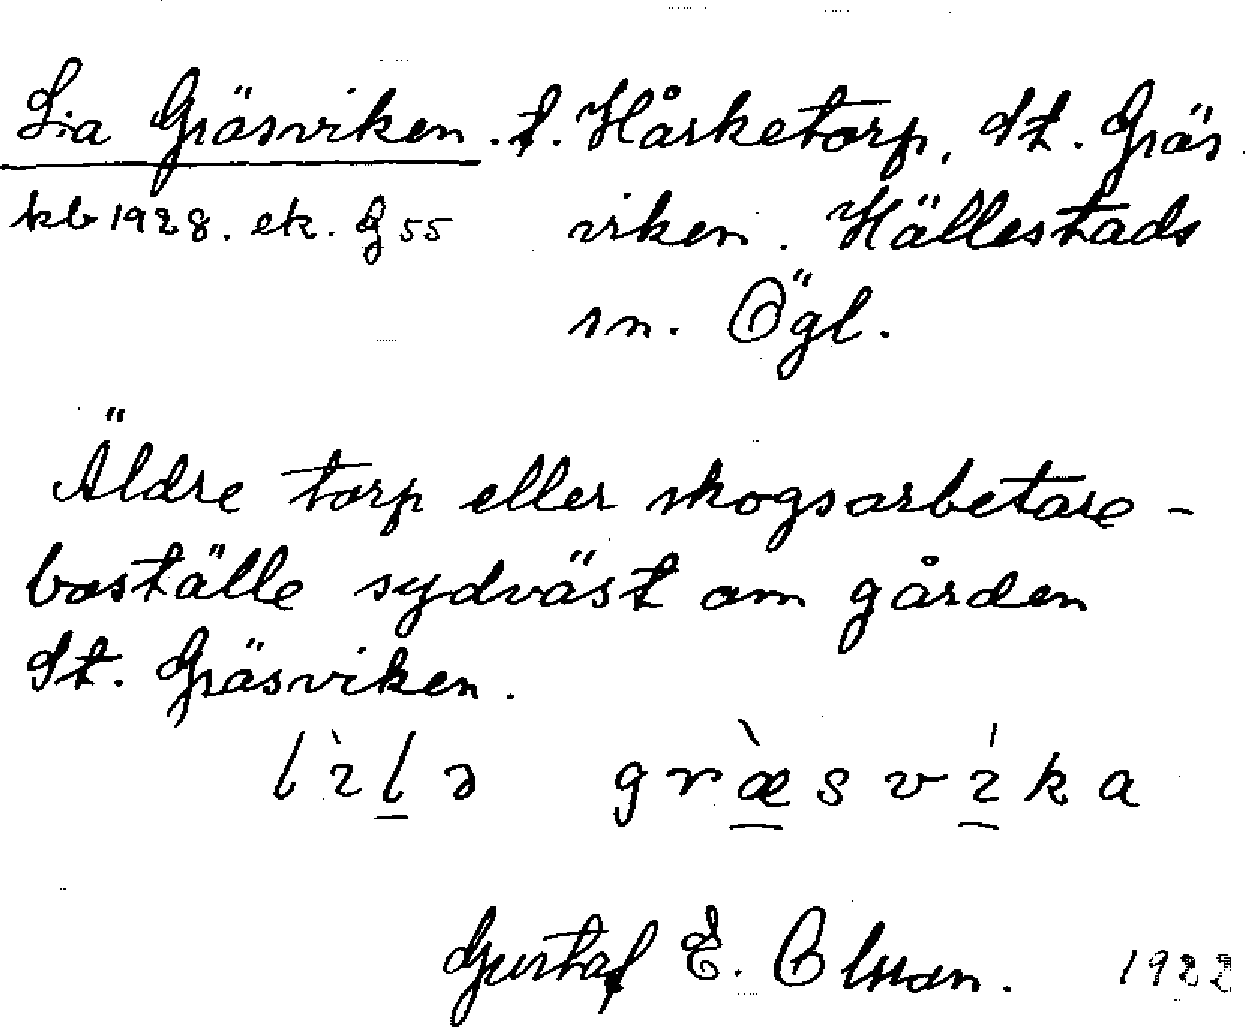 Lia Gräsviken. t. Hårketorp, St. Gräs
kb 1928. ek. G 55 viken. Hällestads
sn. Ögl.
Äldre torp eller skogsarbetare-
boställe sydväst om gården
St. Gräsviken.
lìlə græ̀svíka
Gustaf E. Olsson. 1922